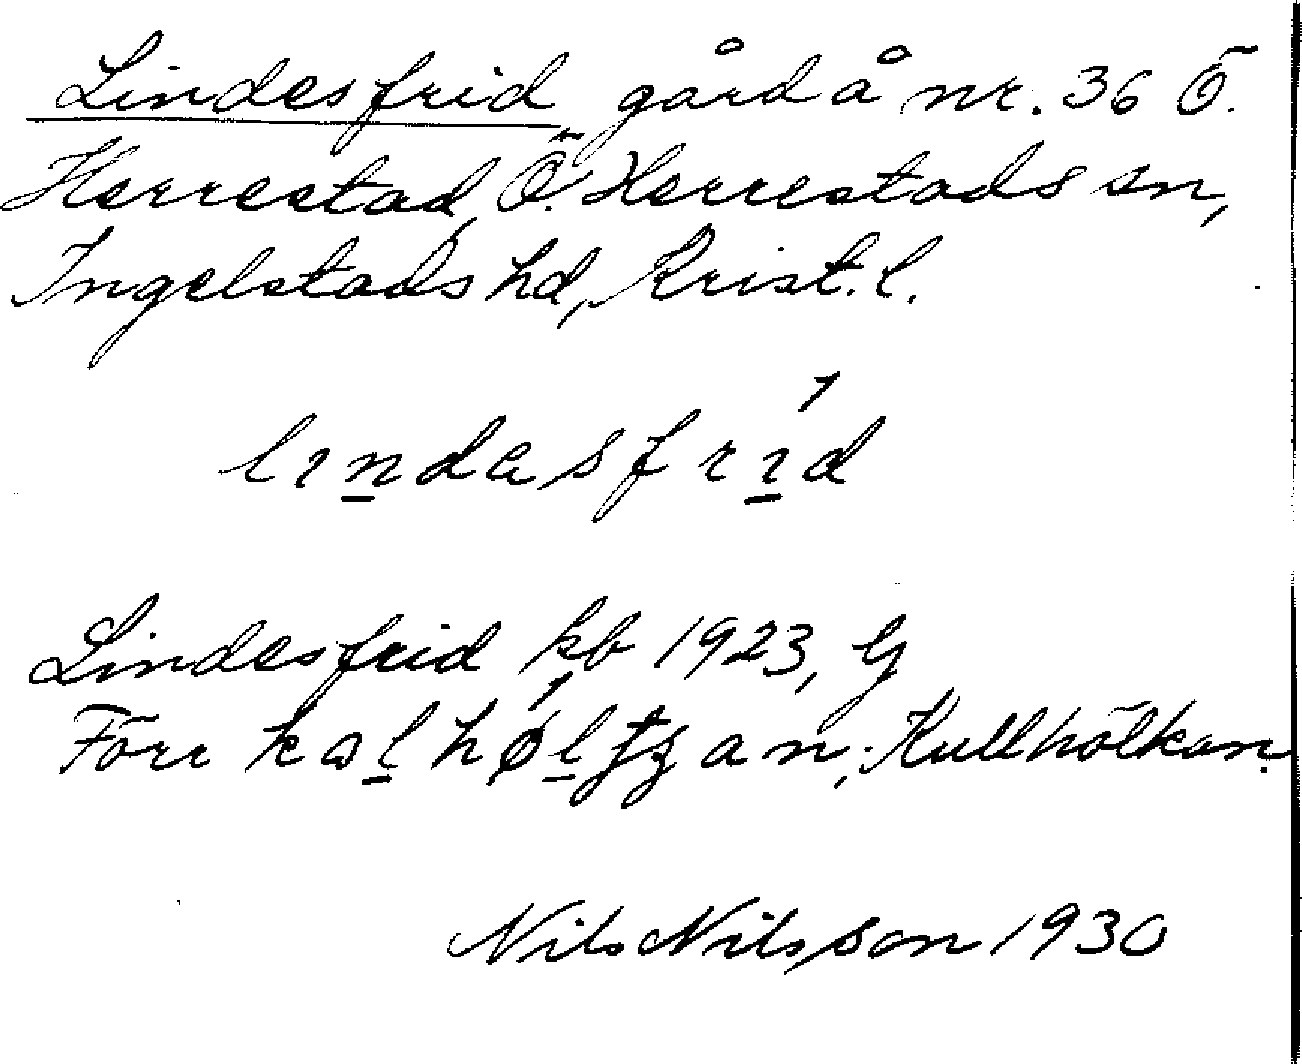 Lindesfrid gård å nr. 36 Ö.
Herrestad, Ö. Herrestads sn,
Ingelstads hd, Krist. l.
lındasfrı́d
Lindesfrid kb 1923, G
Förr Kullhölkan.
Nils Nilsson 1930